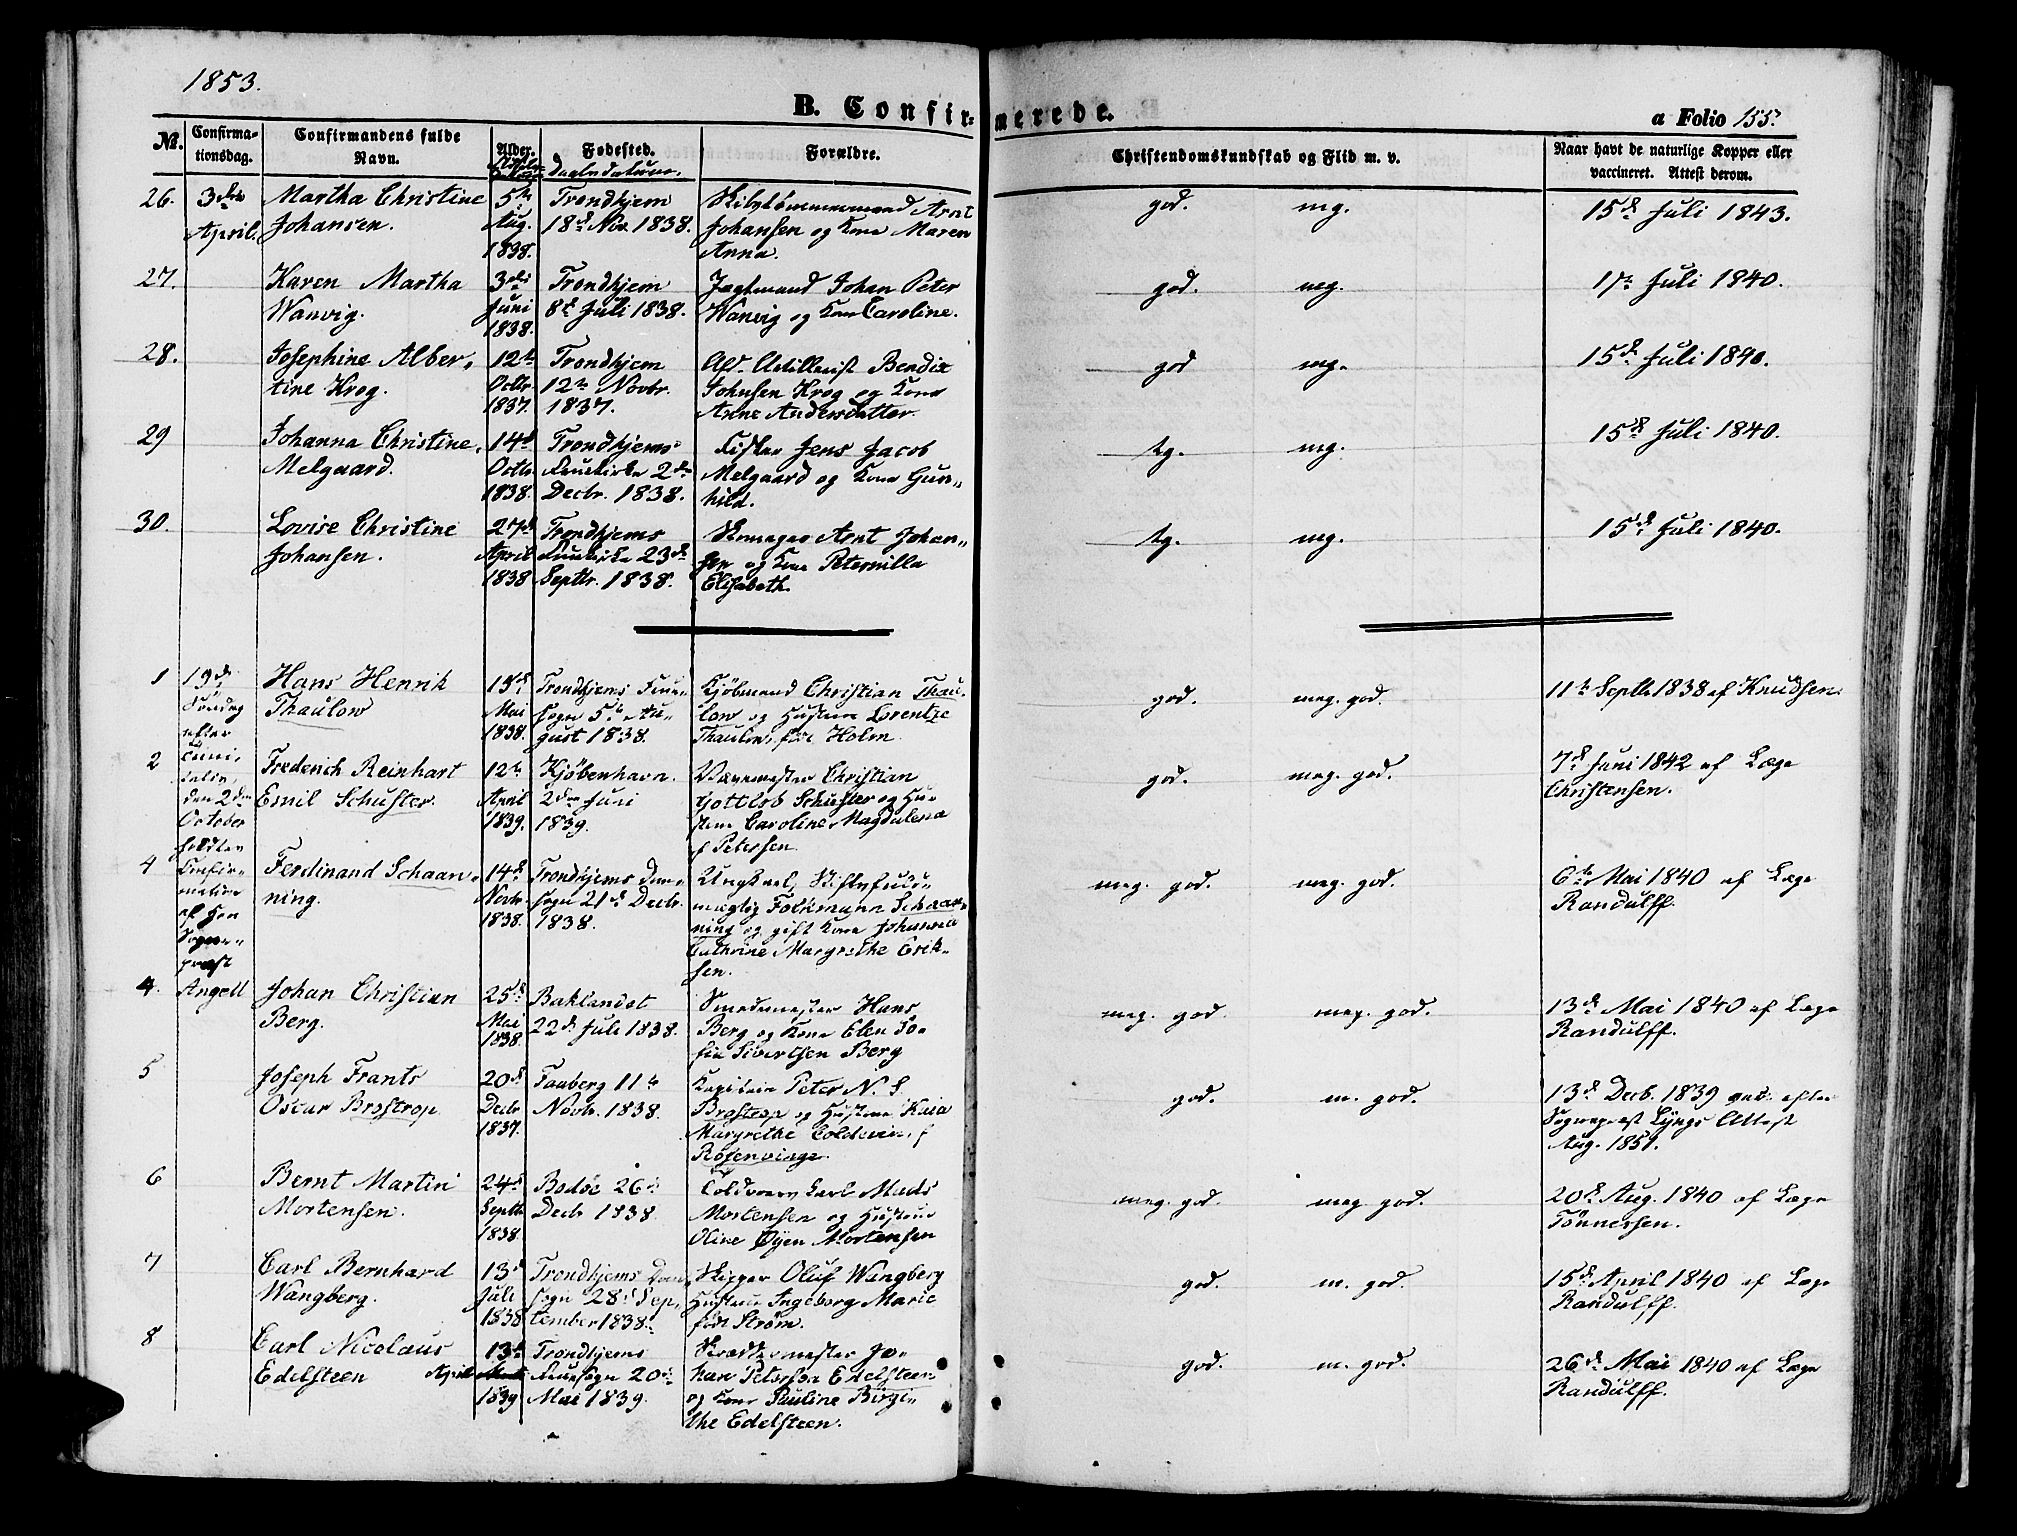 1853.
B. Confirmerede.
a Folio 155.
Nr.
Confirmationsdag.
Confirmandens fulde Navn.
Alder.
Fødested.
Daabsdatum.
Forældre.
Christendomskundskab og Flid m. v.
Naar havt de naturlige Kopper eller vaccineret. Attest derom.
26. 3die Martha Christine 5te Trondhjem Skibstømmermand Arnt god. mg. 15de Juli 1843.
April. Johansen. Aug. 18de Nov. 1838. Johansen og Kone Maren
1838. Anna.
27. Karen Martha 3die Trondhjem Jagtmand Johan Peter god. mg. 17de Juli 1840.
Wanvig. Juni 8de Juli 1838. Wanvig og Kone Caroline.
1838.
28. Josephine Alber- 12te Trondhjem Afs. Artillerist Bendix god mg. 15de Juli 1840.
tine Krog. Octbr. 12te Novbr. Johnsen Krog og Kone
1837. 1837. Anne Andersdatter.
29 Johanna Christine 14de Trondhjems Fisker Jens Jacob tg. mg. 15de Juli 1840.
Melgaard. Octbr. Fruekirke 2den Melgaard og Kone Gun-
1838. Decbr. 1838. hild.
30. Lovise Christine 27de Trondhjems Arnt Johan- tg. mg. 15de Juli 1840.
Johansen. April Fruekirke 23de sen og Kone Peternilla
1838 Septbr. 1838. Elisabeth.
1 19de Hans Henrik Trondhjems Frue- Kjøbmand Christian Thau- god. meg. god. 11te Septbr 1838 af Knudsen.
Søndag Thaulow Mai sogn 5te Au- low og Hustrue Lorentze
efter 1838. gust 1838. Thaulow, før Holm.
2 Frederich Reinhart 12te Kjøbenhavn. Christian god. meg. god. 7de Juni 1842 af Læge
den 2den Emil Schuster. April 2den Juni Gottlob Schuster og Hu- Christensen.
October 1839. 1839. strue Caroline Magdalena
holdten f. Petersen.
4 Confir- Ferdinand Schaan- 14de Trondhjems Dom- Ungkarl, meg. god. meg. god. 6te Mai 1840 af Læge
mation ning. Novbr. sogn 21de Decbr. mægtig Folkmann Schaan- Randulff.
af Hr. 1838. 1838. ning og gift Kone Johanna
Sogne- Cathrine Margrethe Erik-
præst sen.
4. Angell Johan Christian 25de Baklandet Smedemester Hans meg. god. meg. god. 13de Mai 1840 af Læge
Berg. Mai 22de Juli 1838. Berg og Kone Elen So- Randulff.
1838. fia Sivertsen Berg
5 Joseph Frants 20de Faaberg 11te Kapitain Peter N. S god. m. god. 13de Decb. 1839 vac. efter
Oscar Brostrop. Decbr Novbr. 1838. Brostrop og Hustrue Kaia Sognepræst Lyngs Attest
1837. Margrethe Coldevin, f Aug. 1851.
Rosenvinge.
6 Bernt Martin 24de Bodøe 26de Toldvagt Carl Mads meg. god. meg god. 20de Aug. 1840 af Læge
Mortensen. Septbr Decbr 1838. Mortensen og Hustrue Tønnessen.
1838. Oline Øyen Mortensen
7 Carl Bernhard 13de Trondhjems Dom- Skipper Oluf Wangberg god. m. god. 15de April 1840 af Læge
Wangberg. Juli sogn 28de Sep- Hustrue Ingeborg Marie Randulff.
1838 tember 1838. født Strøm.
8 Carl Nicolaus 13de Trondhjems Skræddermester Jo- god. m. god. 26de Mai 1840 af Læge
Edelsteen April Fruesogn 20de han Petersen Edelsteen Randulff.
1839 Mai 1839. og Kone Pauline Birgi-
the Edelsteen.